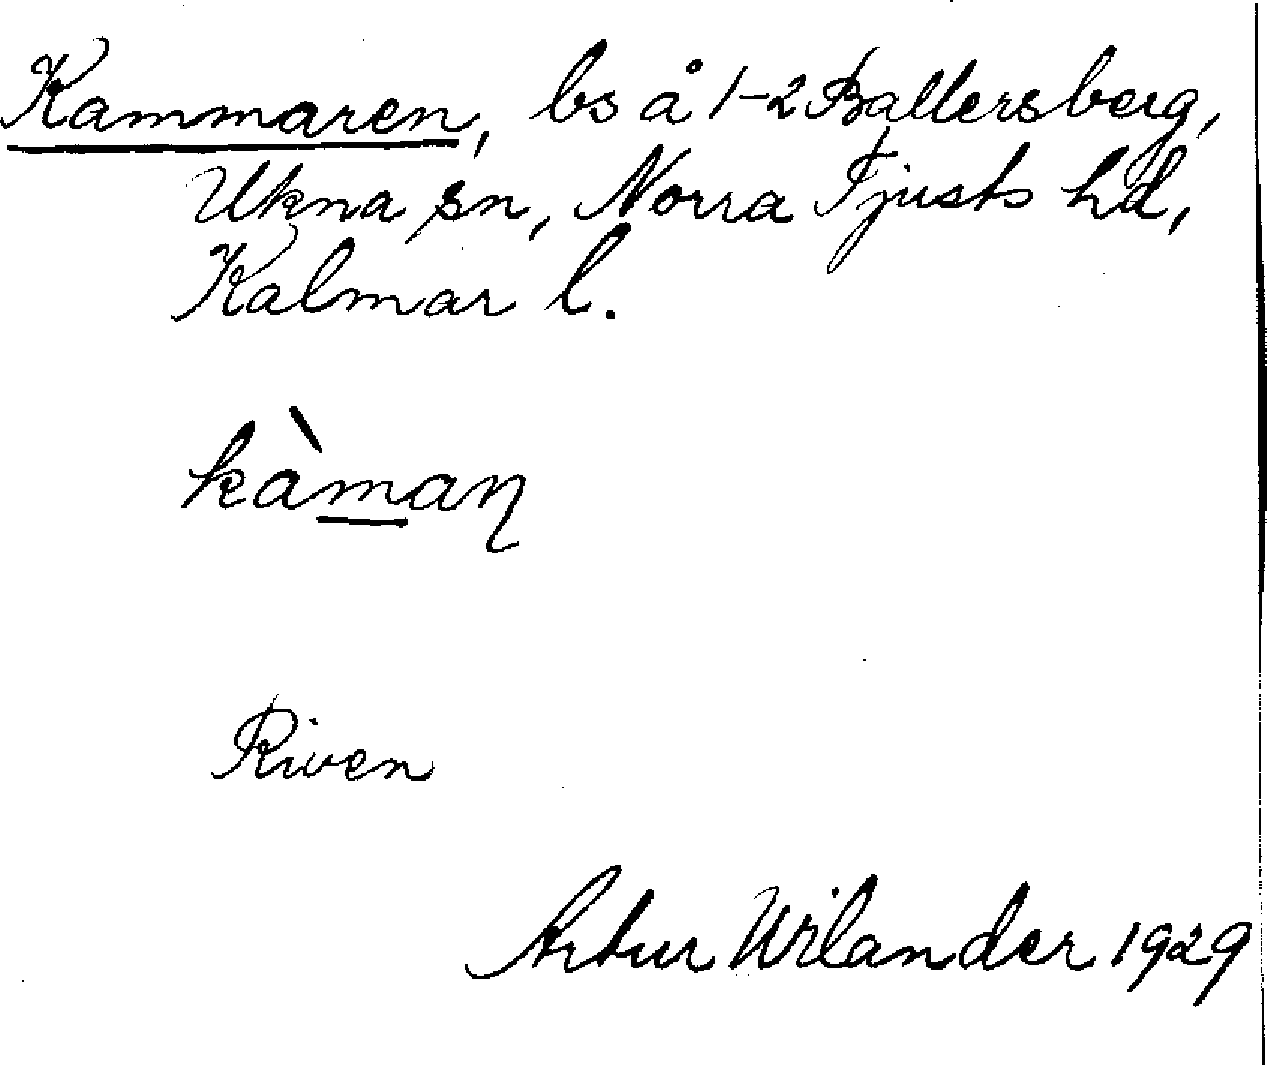 Kammaren, bs å 1-2 Ballersberg,
Ukna sn, Norra Tjusts hd,
Kalmar l.
kàmaɳ
Riven
Artur Wilander 1929